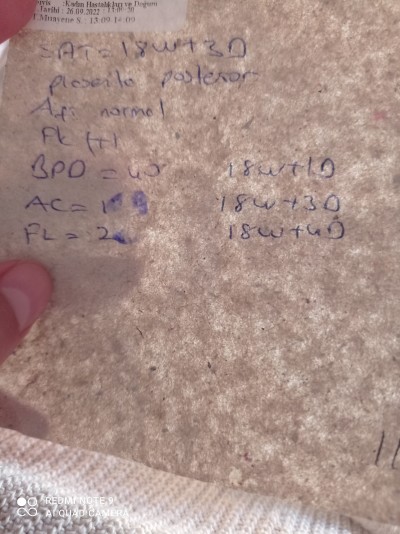 Kadın Hastalıkları ve Doğum
Tarihi : 26.09.2022
Muayene S.:
SAT = 18w+3D
plasenta posterior
normal
FK (+)
BPD = 18w+1D
AC = 18w+3D
FL = 18w+4D
11
REDMI NOTE 9
AI QUAD CAMERA